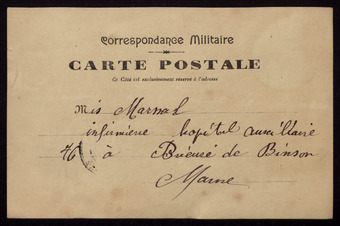 Correspondance Militaire
CARTE POSTALE
Ce Côté est exclusivement réservé à l'adresse
Mis Marsal
infirmière hopital auxilliaire
76 à Prieuré de Binson
Marne